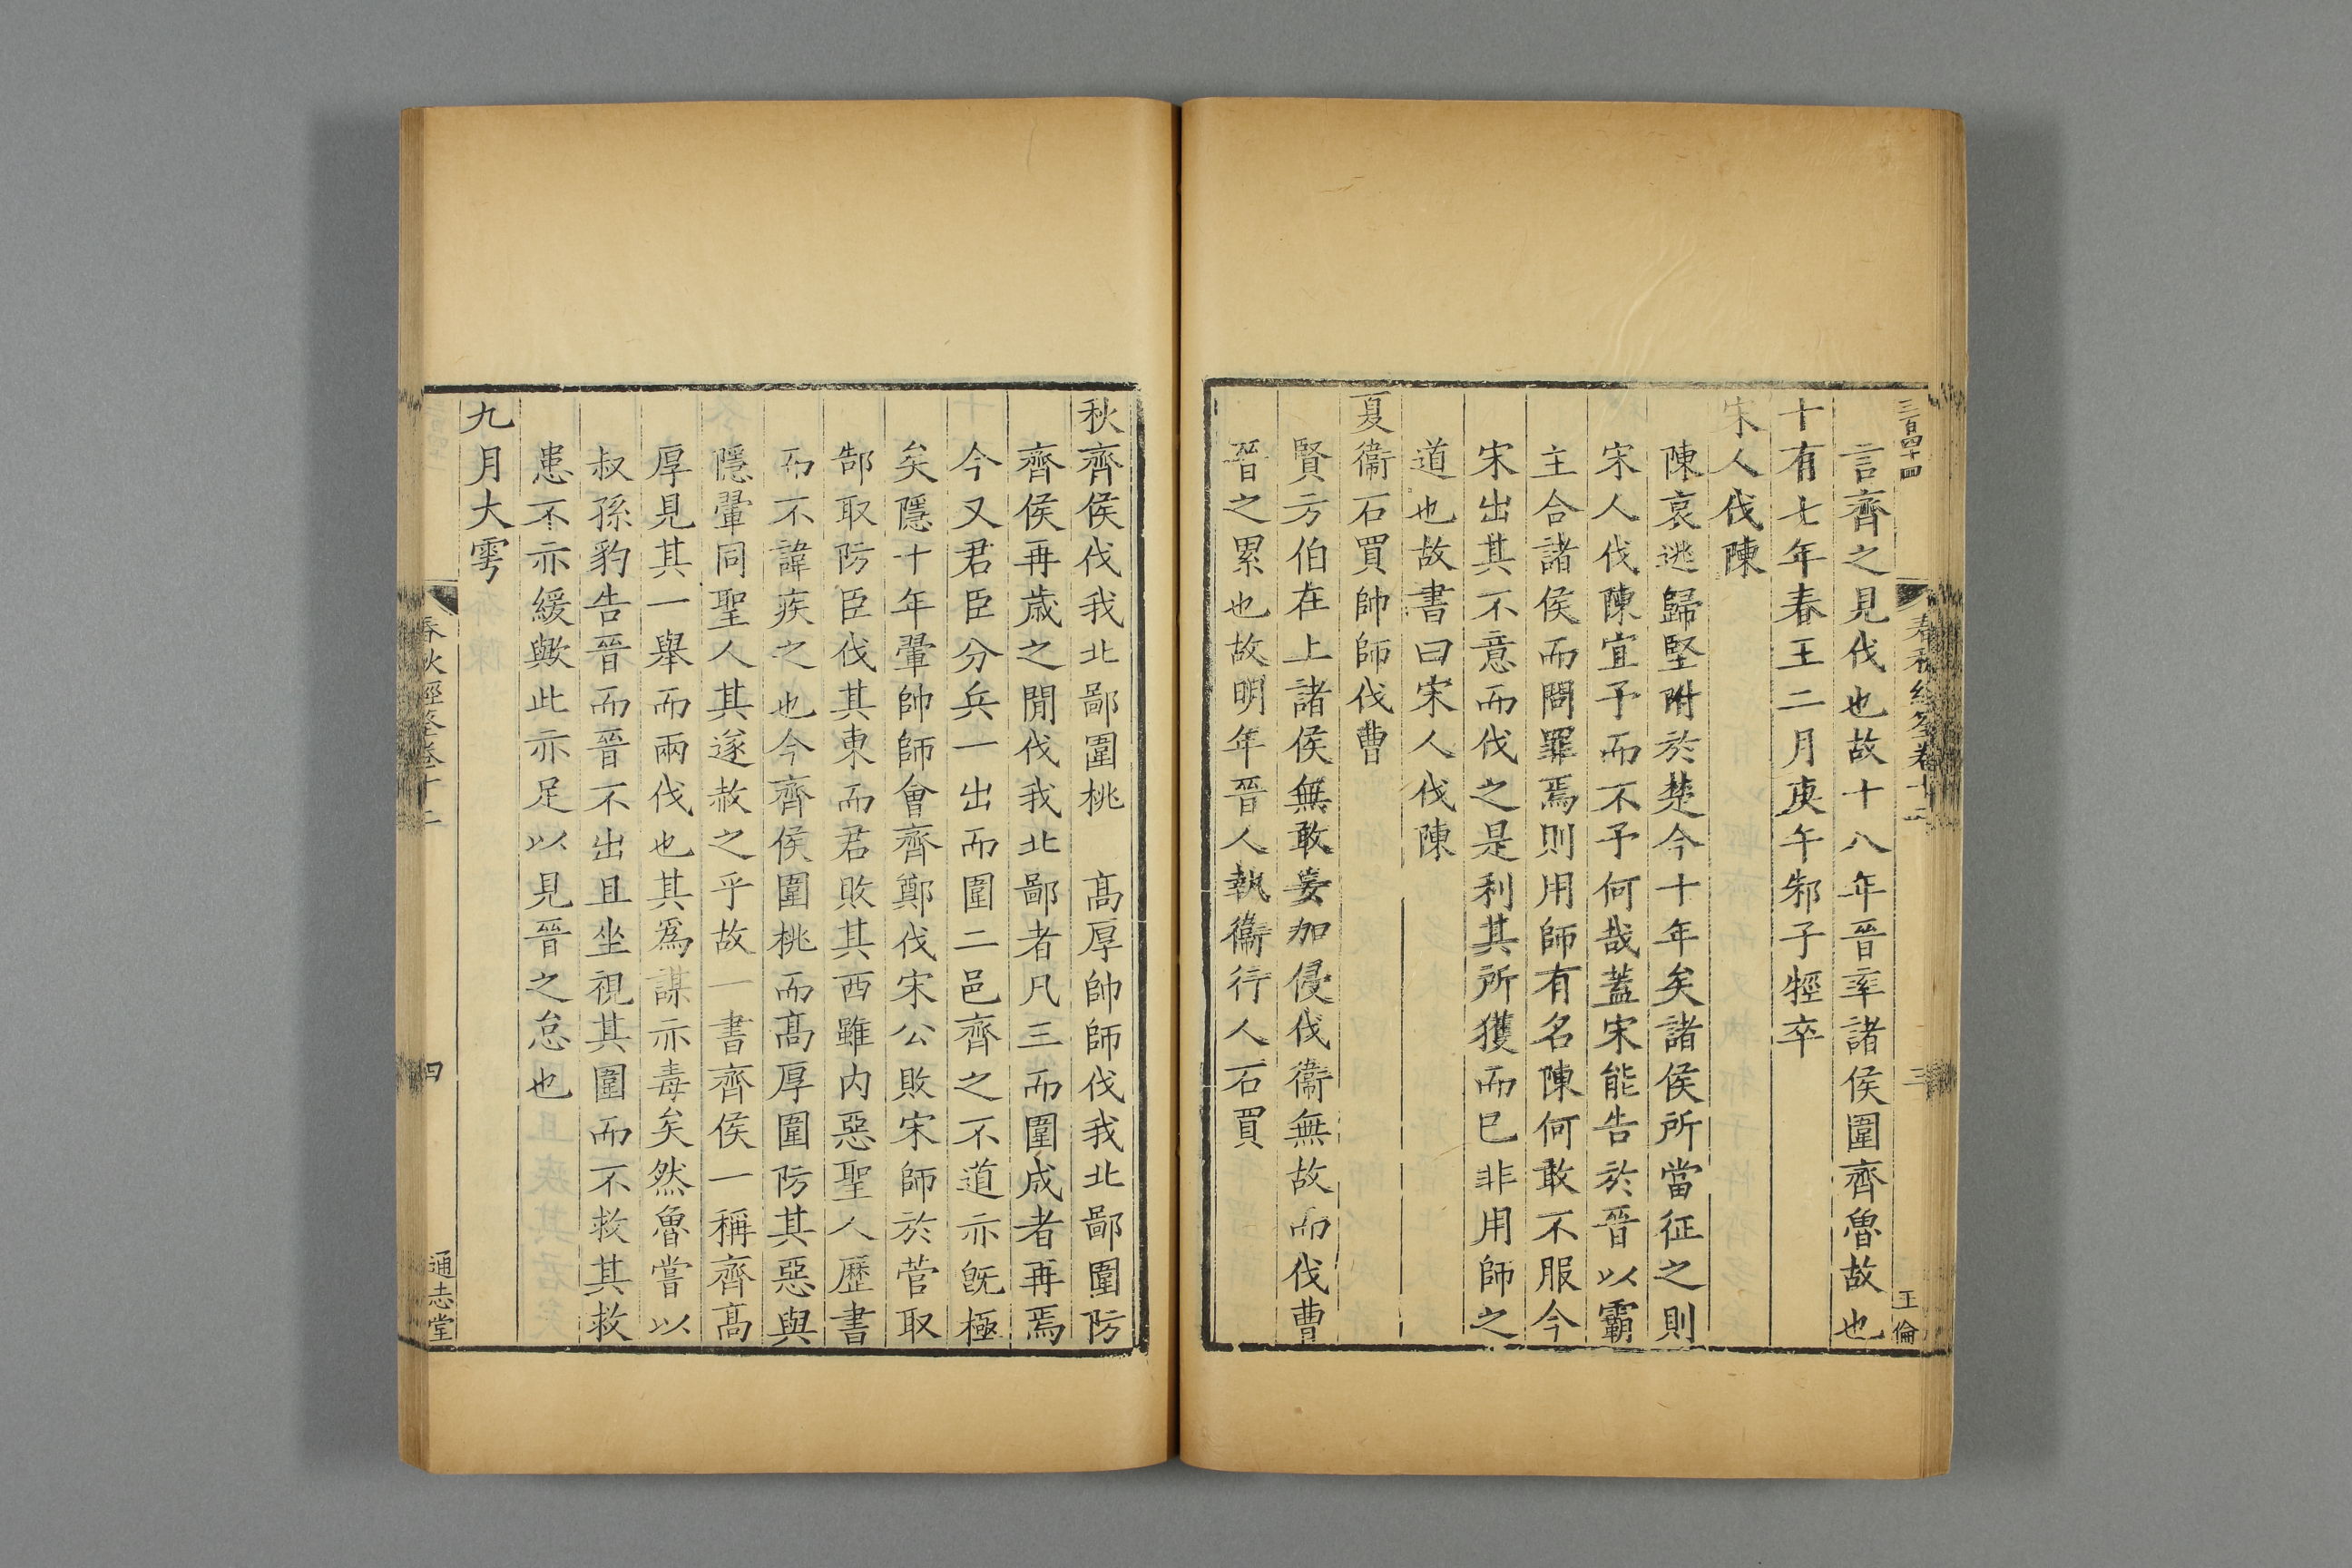 三百四十四
三
王倫
言齊之見伐也故十八年晉率諸侯圍齊魯故也
十有七年春王二月庚午邾子牼卒
宋人伐陳
陳哀逃歸堅附於楚今十年矣諸侯所當征之則
宋人伐陳宜予而不予何哉蓋宋能告於晉以霸
主合諸侯而問罪焉則用師有名陳何敢不服今
宋出其不意而伐之是利其所獲而已非用師之
道也故書曰宋人伐陳
夏衞石買帥師伐曹
賢方伯在上諸侯無敢妄加侵伐衞無故而伐曹
晉之累也故明年晉人執衞行人石買
秋齊侯伐我北鄙圍桃　高厚帥師伐我北鄙圍防
齊侯再歲之閒伐我北鄙者凡三而圍成者再焉
今又君臣分兵一出而圍二邑齊之不道亦旣極
矣隱十年翬帥師會齊鄭伐宋公敗宋師於菅取
郜取防臣伐其東而君敗其西雖內惡聖人歷書
而不諱疾之也今齊侯圍桃而高厚圍防其惡與
隱翬同聖人其遂赦之乎故一書齊侯一稱齊高
厚見其一舉而兩伐也其爲謀亦毒矣然魯嘗以
叔孫豹告晉而晉不出且坐視其圍而不救其救
患不亦緩歟此亦足以見晉之怠也
九月大雩
春秋經筌卷十二
四
通志堂